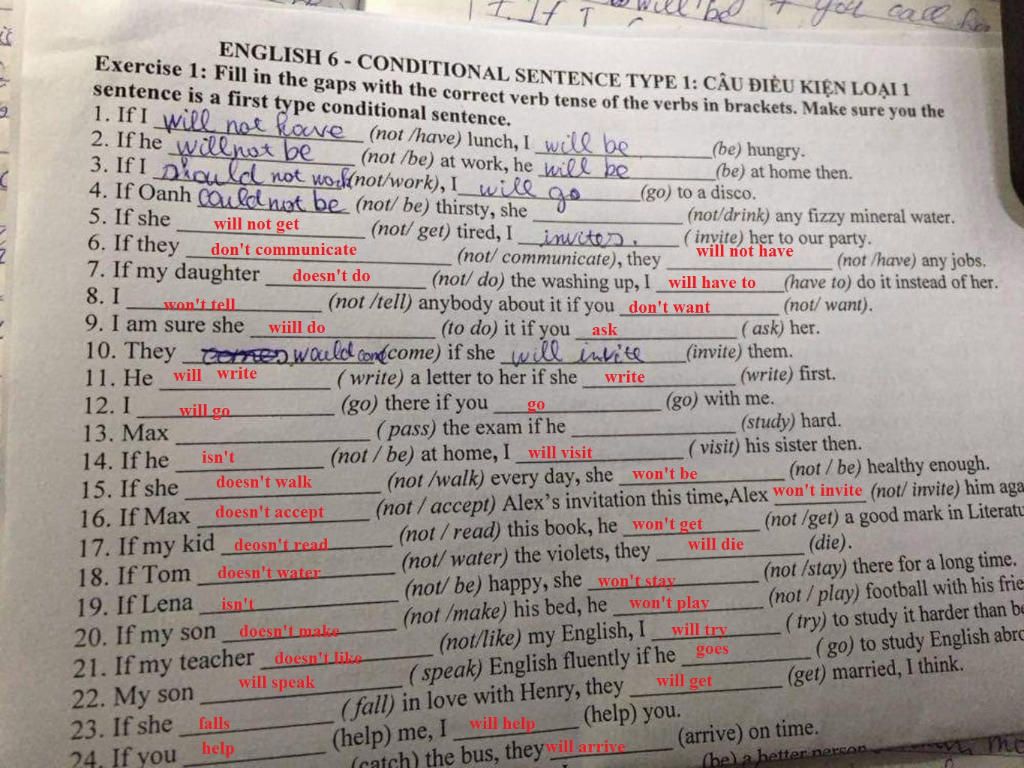 will be if you call
ENGLISH 6 - CONDITIONAL SENTENCE TYPE 1: CÂU ĐIỀU KIỆN LOẠI 1
Exercise 1: Fill in the gaps with the correct verb tense of the verbs in brackets. Make sure you the
sentence is a first type conditional sentence.
1. If I will not have (not /have) lunch, I will be (be) hungry.
2. If he will not be (not /be) at work, he will be (be) at home then.
3. If I should not work (not/work), I will go (go) to a disco.
4. If Oanh could not be (not/ be) thirsty, she ____ (not/drink) any fizzy mineral water.
5. If she will not get (not/ get) tired, I invites. ( invite) her to our party.
6. If they don't communicate (not/ communicate), they will not have (not /have) any jobs.
7. If my daughter doesn't do (not/ do) the washing up, I will have to (have to) do it instead of her.
8. I won't tell (not /tell) anybody about it if you don't want (not/ want).
9. I am sure she wiill do (to do) it if you ask ( ask) her.
10. They would come (come) if she will invite (invite) them.
11. He will write ( write) a letter to her if she write (write) first.
12. I will go (go) there if you go (go) with me.
13. Max ____ ( pass) the exam if he ____ (study) hard.
14. If he isn't (not / be) at home, I will visit ( visit) his sister then.
15. If she doesn't walk (not /walk) every day, she won't be (not / be) healthy enough.
16. If Max doesn't accept (not / accept) Alex's invitation this time,Alex won't invite (not/ invite) him aga
17. If my kid deosn't read (not / read) this book, he won't get (not /get) a good mark in Literatu
18. If Tom doesn't water (not/ water) the violets, they will die (die).
19. If Lena isn't (not/ be) happy, she won't stay (not /stay) there for a long time.
20. If my son doesn't make (not /make) his bed, he won't play (not / play) football with his frie
21. If my teacher doesn't like (not/like) my English, I will try ( try) to study it harder than be
22. My son will speak ( speak) English fluently if he goes ( go) to study English abro
23. If she falls (fall) in love with Henry, they will get (get) married, I think.
24. If you help (help) me, I will help (help) you.
(catch) the bus, they will arrive (arrive) on time.
(be) a better person